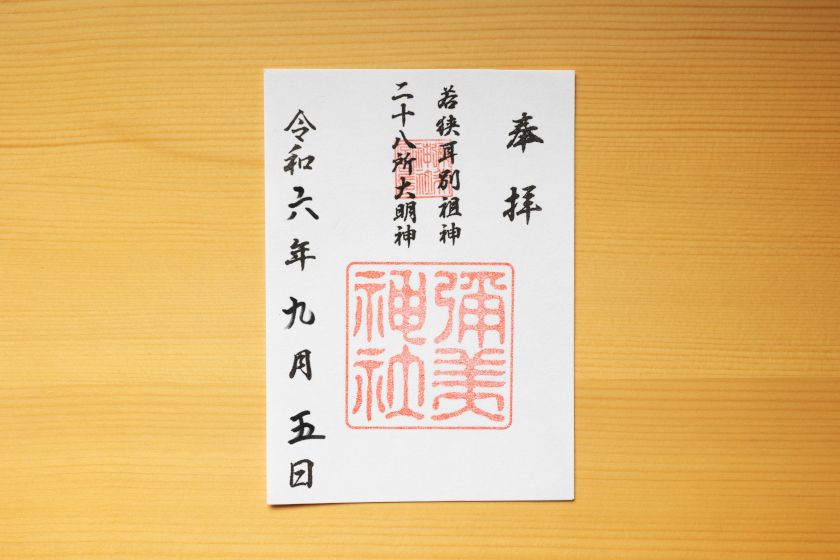 奉拝
若狭耳別祖神
二十八所大明神
彌美
神社
令和六年九月五日